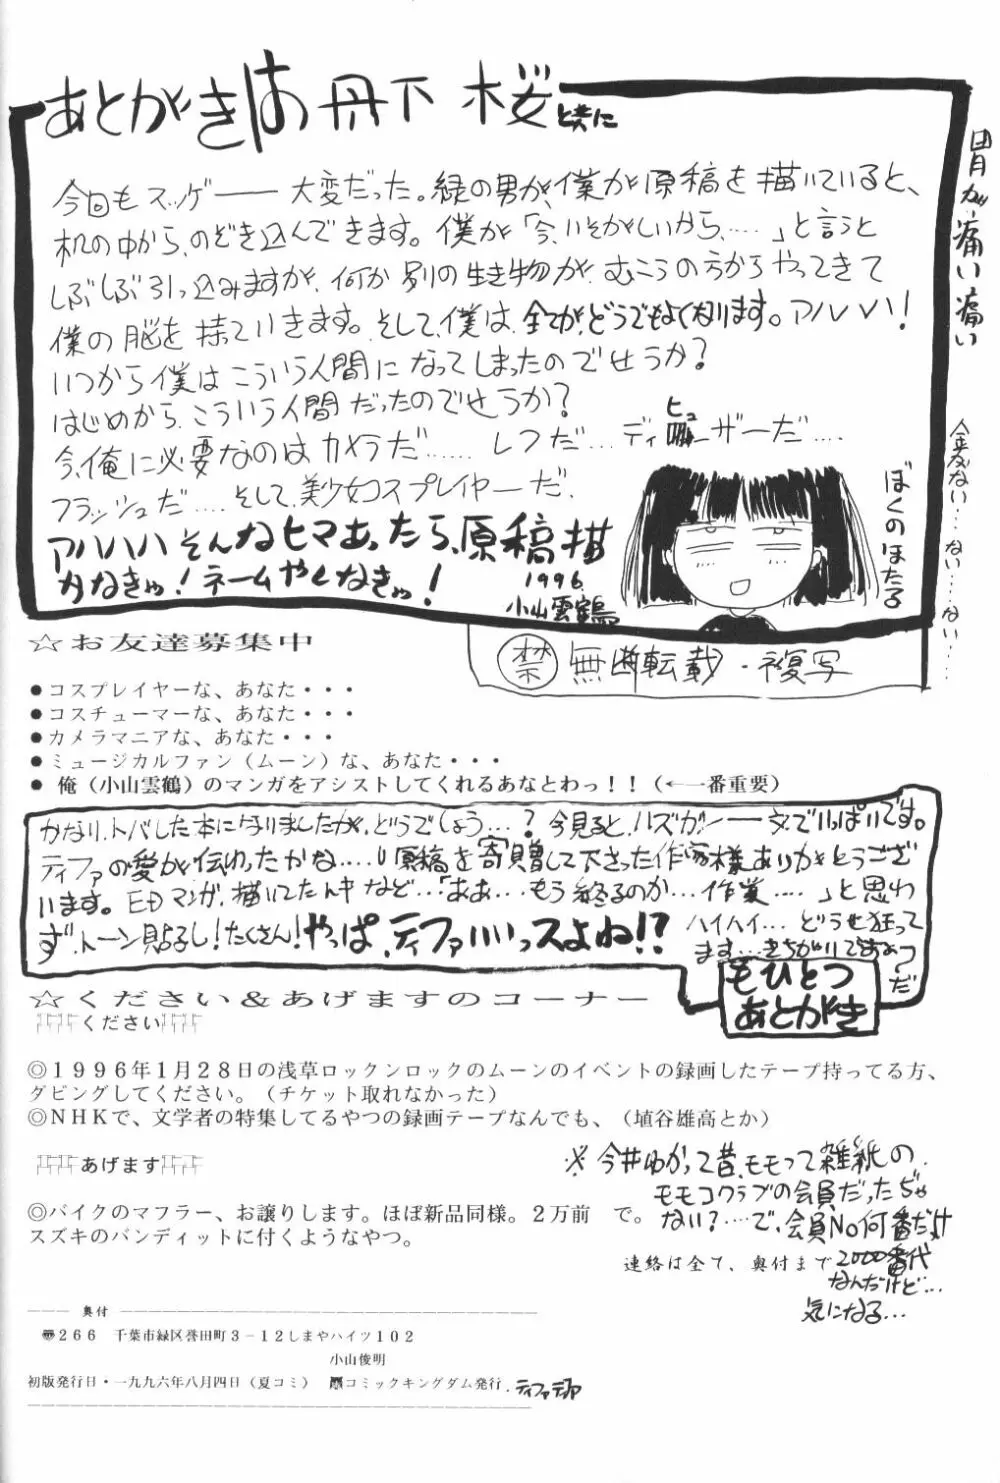 あとがきは丹下 桜と共に
今回もスッゲー── 大変だった。緑の男が、僕が原稿を描いていると、
机の中から、のぞき込んできます。僕が「今、いそがしいから、……」と言うと
しぶしぶ引っ込みますが、何か別の生き物が、むこうの方からやってきて
僕の脳を持っていきます。そして、僕は、全てが、どうでもよくなります。アハハハ!
いつから僕はこういう人間になってしまったのでせうか?
はじめから、こういう人間だったのでせうか?
今、俺に必要なのはカメラだ…… レフだ…ディヒューザーだ….
フラッシュだ…. そして、美少女コスプレイヤーだ.
アハハハそんなヒマあったら、原稿描
かなきゃ!ネームやんなきゃ!
1996
小山雲鶴
ぼくのほたる
胃が痛い痛い
金がない…ない…ない…
禁 無断転載・複写
☆お友達募集中
●コスプレイヤーな、あなた・・・
●コスチューマーな、あなた・・・
●カメラマニアな、あなた・・・
●ミュージカルファン(ムーン)な、あなた・・・
●俺(小山雲鶴)のマンガをアシストしてくれるあなとわっ!!(←一番重要)
かなり、トバした本になりましたが、どうでしょう…?今見ると、ハズカシー文でいっぱいです。
ティファの愛が伝わったかな…. 原稿を寄贈して下さった作家様ありがとうござ
います。EDマンガ、描いてた時など…「ああ…もう終るのか…作業….」と思わ
ず、トーン貼るし!たくさん!やっぱ、ティファいいっスよね!?
ハイハイ…どうせ狂って
ます…きちがいであぉつ
だ
もひとつ
あとがき
☆ください&あげますのコーナー
ください
◎1996年1月28日の浅草ロックンロックのムーンのイベントの録画したテープ持ってる方、
ダビングしてください。(チケット取れなかった)
◎NHKで、文学者の特集してるやつの録画テープなんでも、(埴谷雄高とか)
あげます
◎バイクのマフラー、お譲りします。ほぼ新品同様。2万前で。
スズキのバンディットに付くようなやつ。
※今井ゆかって昔、モモって雑紙の
モモコクラブの会員だったぢゃ
ない?…で、会員No何番だっけ
2000番代
なんだけど…
気になる…
連絡は全て、奥付まで
奥付
〠266 千葉市緑区誉田町3-12しまやハイツ102
小山俊明
初版発行日・一九九六年八月四日(夏コミ) コミックキングダム発行.ティファデファ